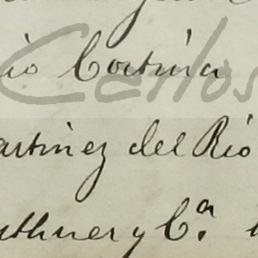 io Cortina
Carlos
artinez del Rio
uthner y Cª.